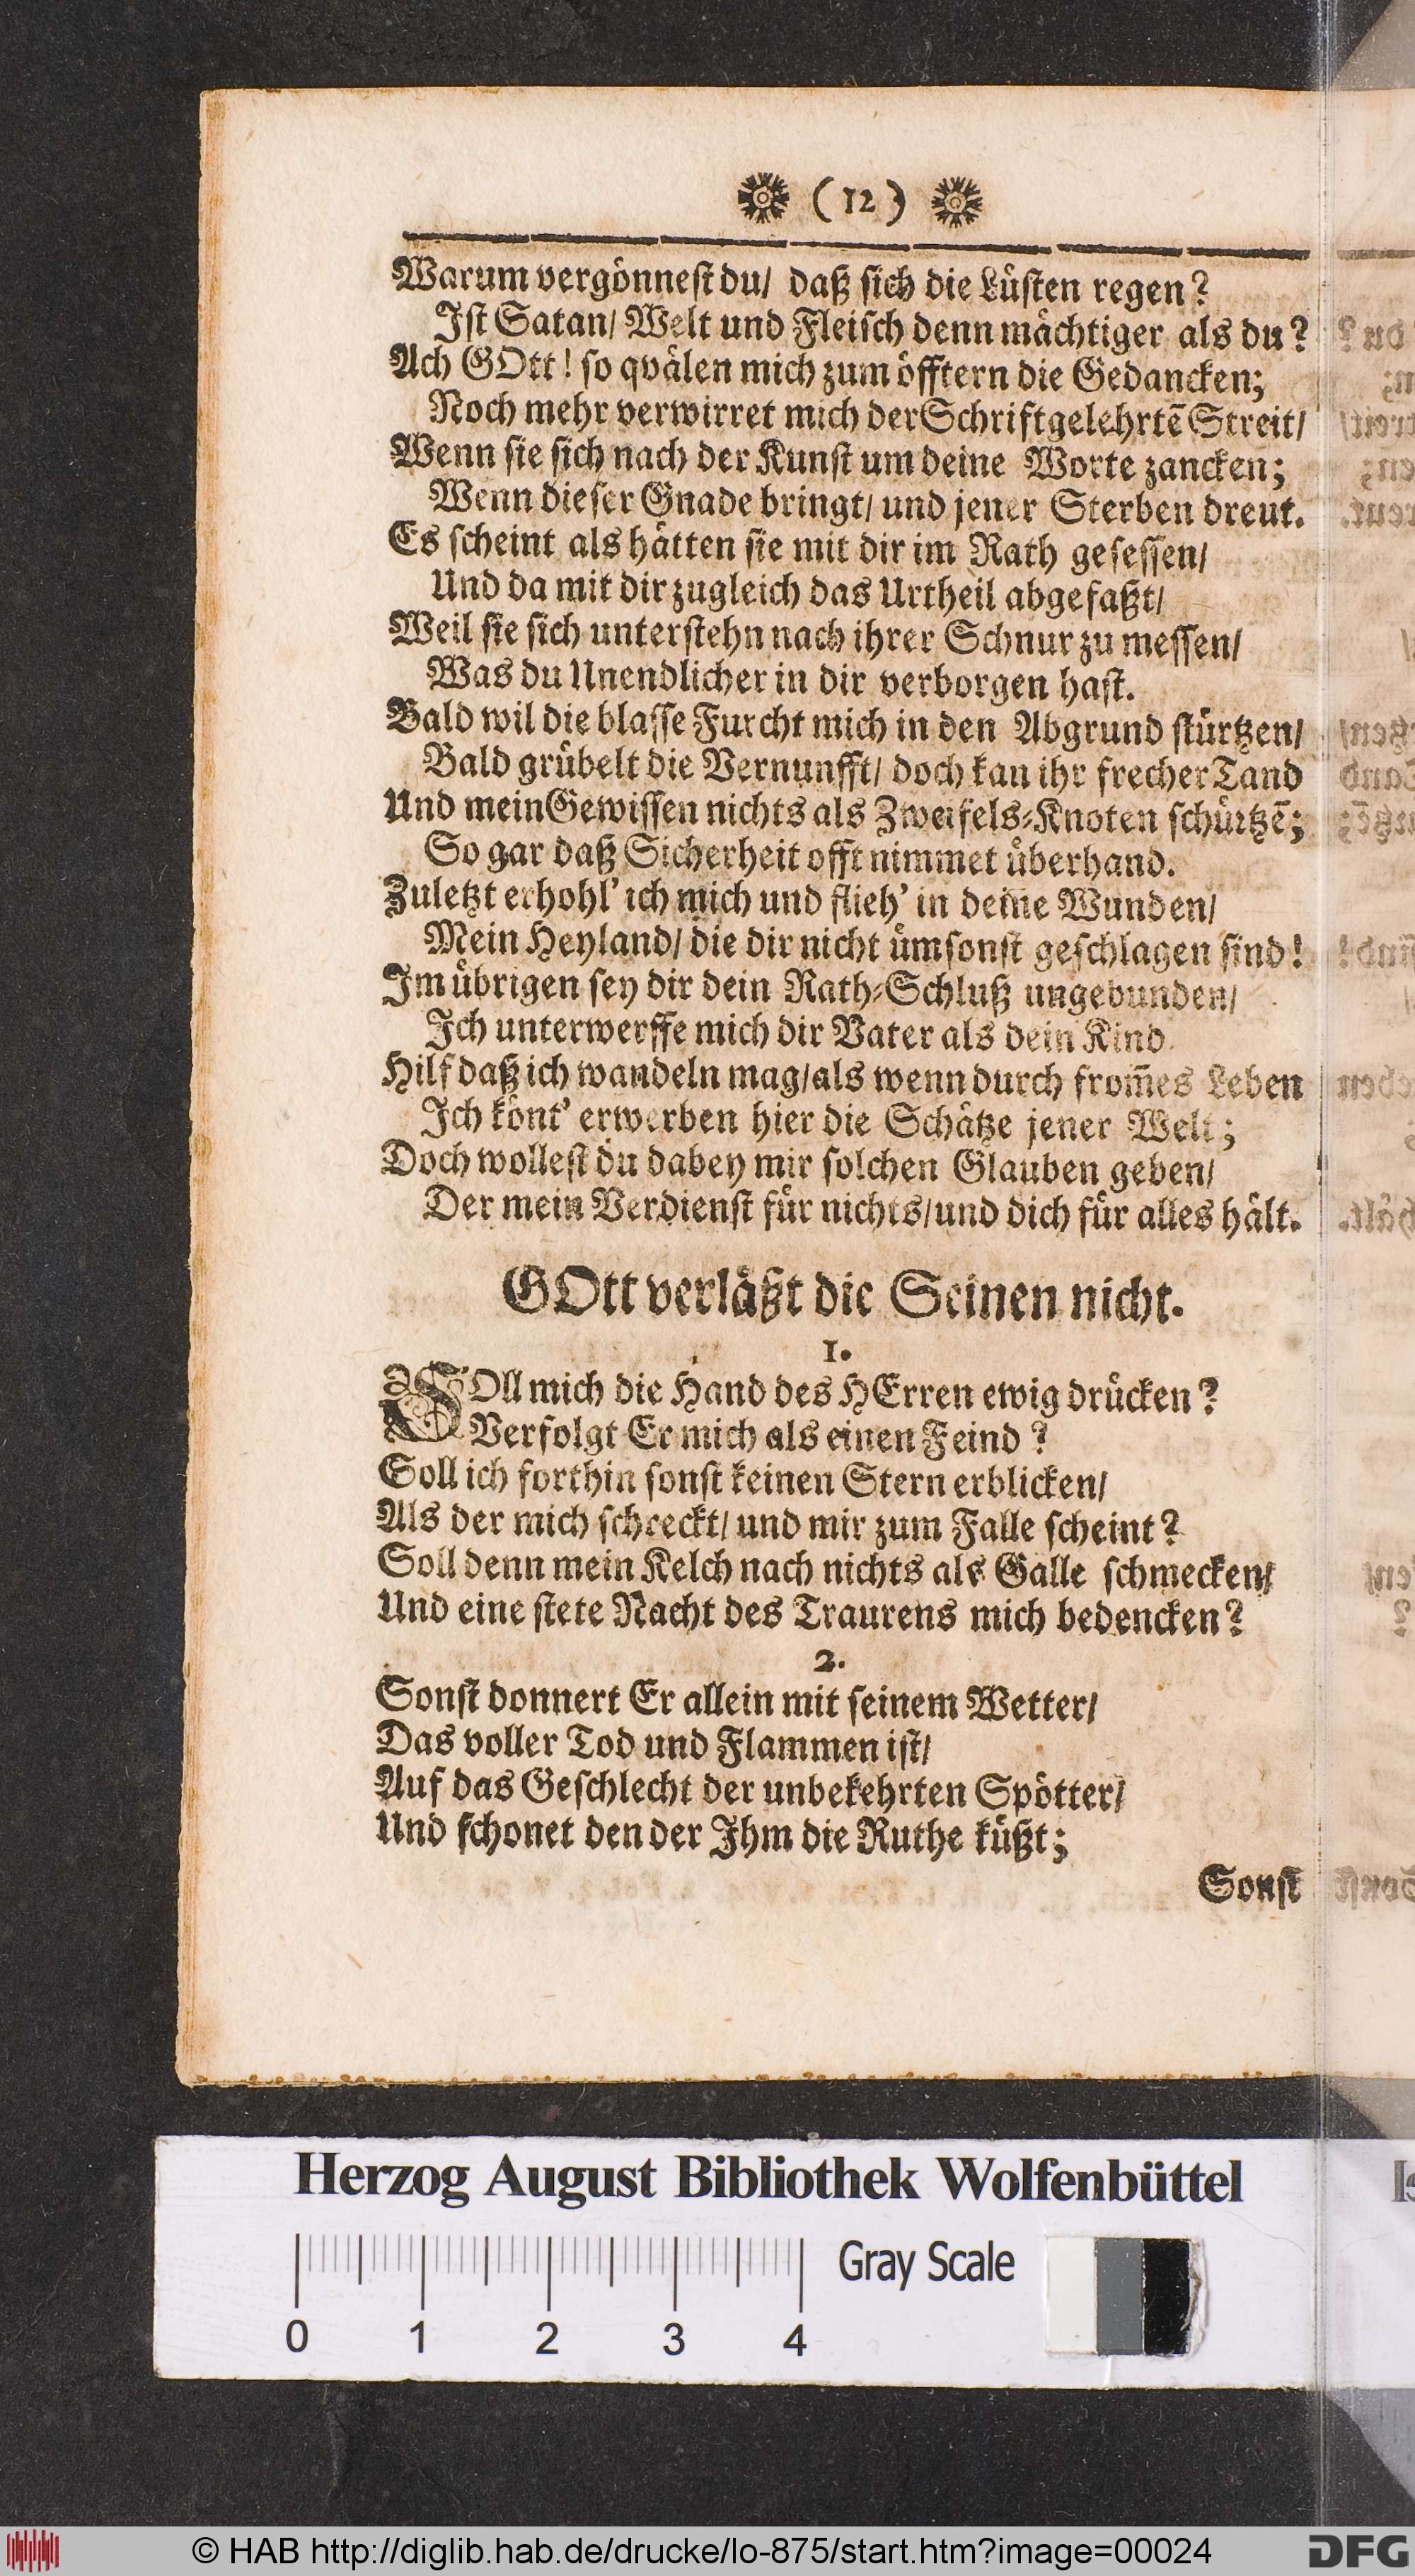 (12)
Warum vergönnest du/ daß sich die Lüsten regen?
Ist Satan/ Welt und Fleisch denn mächtiger als du?
Ach GOtt! so qvälen mich zum öfftern die Gedancken;
Noch mehr verwirret mich der Schriftgelehrtē Streit/
Wenn sie sich nach der Kunst um deine Worte zancken;
Wenn dieser Gnade bringt/ und jener Sterben dreut.
Es scheint als hätten sie mit dir im Rath gesessen/
Und da mit dir zugleich das Urtheil abgefaßt/
Weil sie sich unterstehn nach ihrer Schnur zu messen/
Was du Unendlicher in dir verborgen hast.
Bald wil die blasse Furcht mich in den Abgrund stürtzen/
Bald grübelt die Vernunfft/ doch kan ihr frecher Tand
Und mein Gewissen nichts als Zweifels-Knoten schürtzē;
So gar daß Sicherheit offt nimmet überhand.
Zuletzt erhohl' ich mich und flieh' in deine Wunden/
Mein Heyland/ die dir nicht ümsonst geschlagen sind!
Im übrigen sey dir dein Rath-Schluß ungebunden/
Ich unterwerffe mich dir Vater als dein Kind.
Hilf daß ich wandeln mag/ als wenn durch from̄es Leben
Ich könt' erwerben hier die Schätze jener Welt;
Doch wollest du dabey mir solchen Glauben geben/
Der mein Verdienst für nichts/ und dich für alles hält.
GOtt verläßt die Seinen nicht.
1.
SOll mich die Hand des HErren ewig drücken?
Verfolgt Er mich als einen Feind?
Soll ich forthin sonst keinen Stern erblicken/
Als der mich schreckt/ und mir zum Falle scheint?
Soll denn mein Kelch nach nichts als Galle schmecken/
Und eine stete Nacht des Traurens mich bedencken?
2.
Sonst donnert Er allein mit seinem Wetter/
Das voller Tod und Flammen ist/
Auf das Geschlecht der unbekehrten Spötter/
Und schonet den der Ihm die Ruthe küßt;
Sonst
Herzog August Bibliothek Wolfenbüttel
Gray Scale
0 1 2 3 4
© HAB http://diglib.hab.de/drucke/lo-875/start.htm?image=00024
DFG